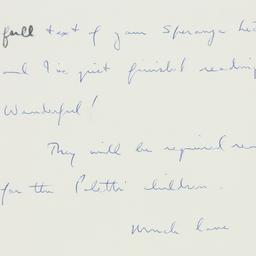 full text of your Speranza
and I've just finished reading
Wonderful!
They will be required
for the Poletti children.
Much love